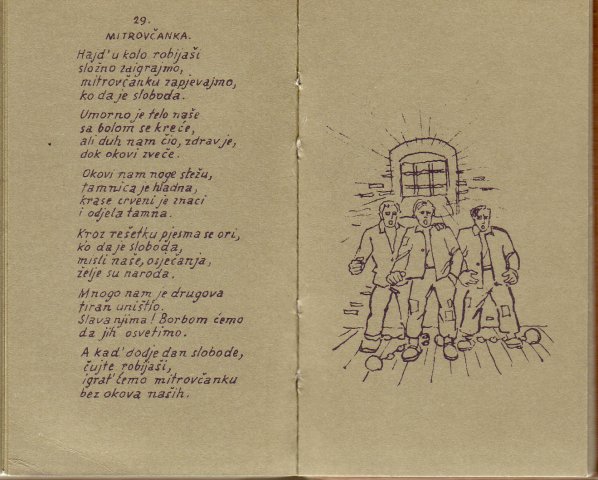 29.
MITROVČANKA.
Hajd' u kolo robijaši
složno zaigrajmo,
mitrovčanku zapjevajmo,
ko da je sloboda.
Umorno je telo naše
sa bolom se kreće,
ali duh nam čio, zdrav je,
dok okovi zveče.
Okovi nam noge stežu,
tamnica je hladna,
krase crveni je znaci
i odjela tamna.
Kroz rešetku pjesma se ori,
k'o da je sloboda,
misli naše, osjećanja,
želje su naroda.
Mnogo nam je drugova
tiran uništio.
Slava njima! Borbom ćemo
da jih osvetimo.
A kad' dodje dan slobode,
čujte robijaši,
igrat' ćemo mitrovčanku
bez okova naših.